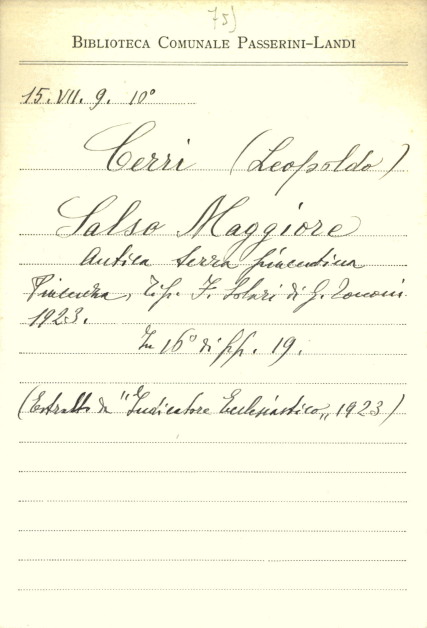 75)
BIBLIOTECA COMUNALE PASSERINI-LANDI
15. VII. 9. 10°
Cerri (Leopoldo)
Salso Maggiore
Antica terra piacentina
Piacenza, Tip. F. Solari di G. Tononi
1923.
In 16° di pp. 19.
(Estratto da "Indicatore Ecclesiastico„ 1923)